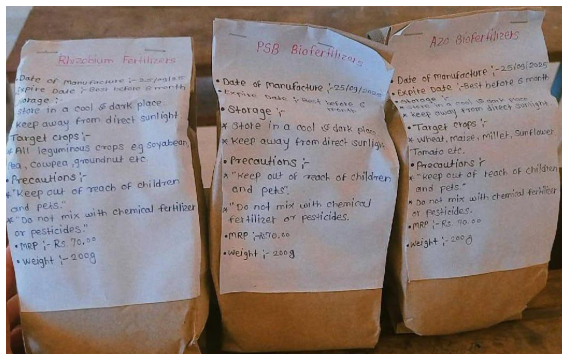 Rhizobium Fertilizers
• Date of Manufacture :- 25/09/2025
Expire Date :- Best before 6 month
Storage :-
Store in a cool & dark place
keep away from direct sunlight
Target crops :-
* All leguminous crops eg soyabean,
Pea, Cowpea, groundnut etc.
• Precautions :-
* "Keep out of reach of children
and pets."
* "Do not mix with chemical fertilizer
or pesticides."
• MRP :- Rs. 70.00
• Weight :- 200g
PSB Biofertilizers
• Date of manufacture :- 25/09/2025
• Expire Date :- Best before 6
month
• Storage :-
* Store in a cool & dark place
* Keep away from direct sunlight
• Precautions :-
* "Keep out of reach of children
and pets."
* "Do not mix with chemical
fertilizer or pesticides.
• MRP :- ₹70.00
• Weight :- 200g
Azo Biofertilizers
• Date of manufacture :- 25/09/2025
Expire Date :- Best before 6 month
• Storage :-
* Store in a cool & dark place
* keep away from direct sunlight
• Target crops :-
* Wheat, Maise, Millet, Sunflower
Tomato etc.
• Precautions :-
* "Keep out of reach of children
and pets."
* Do not mix with chemical fertilizer
or pesticides.
• MRP :- Rs. 70.00
• Weight :- 200g